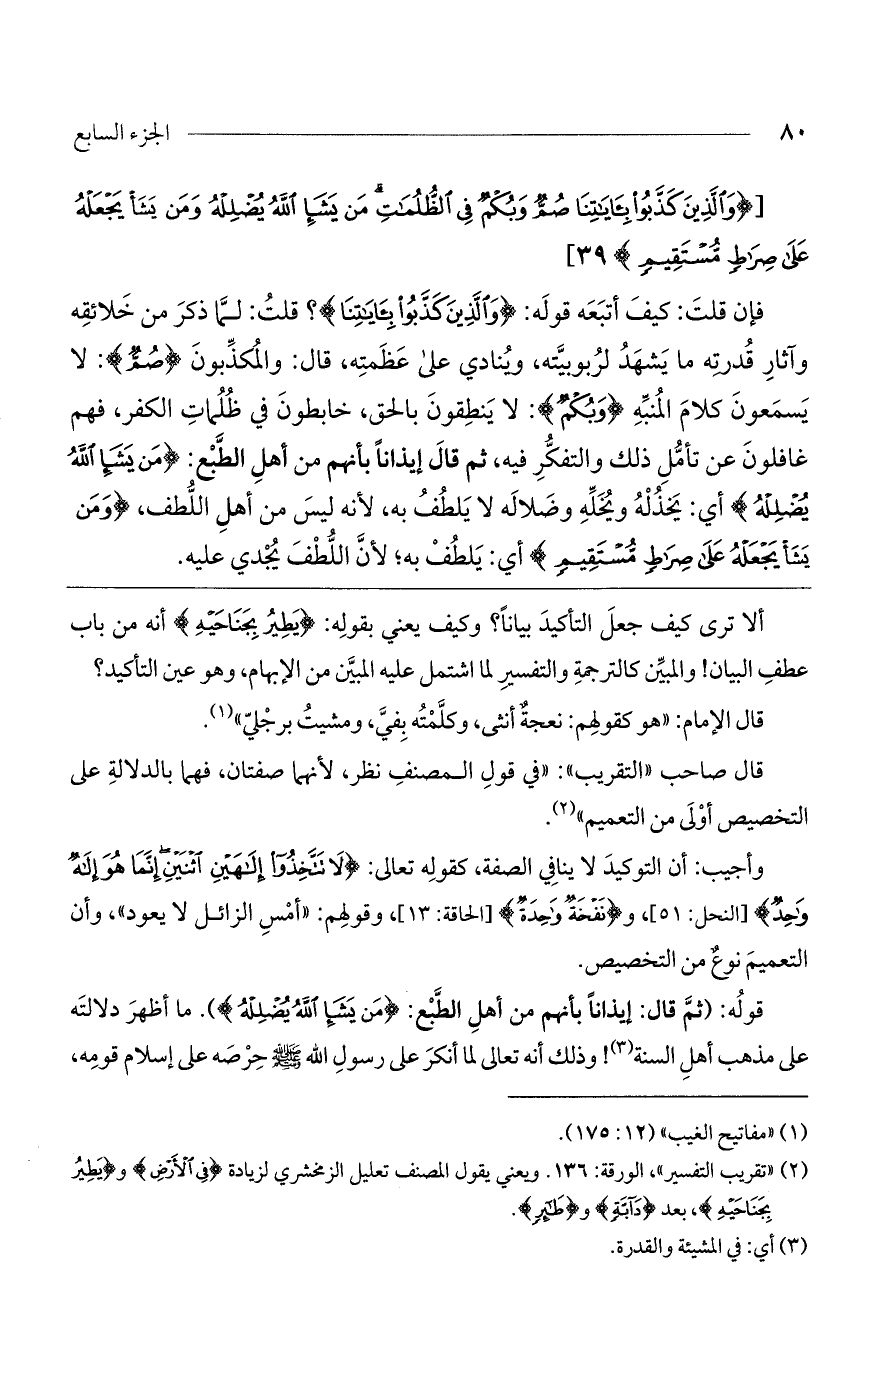 ٨٠ الجزء السابع
[﴿وَٱلَّذِينَ كَذَّبُوا۟ بِـَٔايَـٰتِنَا صُمٌّ وَبُكْمٌ فِى ٱلظُّلُمَـٰتِ ۗ مَن يَشَإِ ٱللَّهُ يُضْلِلْهُ وَمَن يَشَأْ يَجْعَلْهُ
عَلَىٰ صِرَٰطٍ مُّسْتَقِيمٍ ﴾ ٣٩]
فإن قلتَ: كيفَ أتبَعَه قولَه: ﴿وَٱلَّذِينَ كَذَّبُوا۟ بِـَٔايَـٰتِنَا﴾؟ قلتُ: لـمَّا ذكرَ من خَلائقِه
وآثارِ قُدرتِه ما يَشهَدُ لرُبوبيَّته، ويُنادي علىٰ عَظَمتِه، قال: والمُكذِّبونَ ﴿صُمٌّ﴾: لا
يَسمَعونَ كلامَ المُنبِّهِ ﴿وَبُكْمٌ﴾: لا يَنطِقونَ بالحق، خابطونَ في ظُلُماتِ الكفر، فهم
غافلونَ عن تأمُّل ذلك والتفكُّرِ فيه، ثم قالَ إيذاناً بأنهم من أهلِ الطَّبْع: ﴿مَن يَشَإِ ٱللَّهُ
يُضْلِلْهُ ﴾ أي: يَخذُلْهُ ويُخَلِّهِ وضَلالَه لا يَلطُفُ به، لأنه ليسَ من أهلِ اللُّطف، ﴿وَمَن
يَشَأْ يَجْعَلْهُ عَلَىٰ صِرَٰطٍ مُّسْتَقِيمٍ ﴾ أي: يَلطُفْ به؛ لأنَّ اللُّطْفَ يُجْدي عليه.
ألا ترى كيف جعلَ التأكيدَ بياناً؟ وكيف يعني بقولِه: ﴿يَطِيرُ بِجَنَاحَيْهِ ﴾ أنه من باب
عطفِ البيان! والمبيِّن كالترجمةِ والتفسيرِ لما اشتمل عليه المبيَّن من الإبهام، وهو عين التأكيد؟
قال الإمام: «هو كقولهِم: نعجةٌ أنثى، وكلَّمْتُه بِفيَّ، ومشيتُ برجْليّ»(١).
قال صاحب «التقريب»: «في قولِ الـمصنفِ نظر، لأنهما صفتان، فهما بالدلالةِ على
التخصيص أوْلَى من التعميم»(٢).
وأجيب: أن التوكيدَ لا ينافِي الصفة، كقولِه تعالى: ﴿لَا تَتَّخِذُوٓا۟ إِلَـٰهَيْنِ ٱثْنَيْنِ ۖ إِنَّمَا هُوَ إِلَـٰهٌ
وَٰحِدٌ﴾ [النحل: ٥١]، و﴿نَفْخَةٌ وَٰحِدَةٌ﴾ [الحاقة: ١٣]، وقولهِم: «أمْسِ الزائـل لا يعود»، وأن
التعميمَ نوعٌ من التخصيص.
قولُه: (ثمَّ قال: إيذاناً بأنهم من أهلِ الطَّبْع: ﴿مَن يَشَإِ ٱللَّهُ يُضْلِلْهُ ﴾). ما أظهرَ دلالتَه
على مذهب أهلِ السنة(٣)! وذلك أنه تعالى لما أنكرَ على رسولِ الله ﷺ حِرْصَه على إسلام قومِه،
(١) «مفاتيح الغيب» (١٢: ١٧٥).
(٢) «تقريب التفسير»، الورقة: ١٣٦. ويعني يقول المصنف تعليل الزمخشري لزيادة ﴿فِى ٱلْأَرْضِ ﴾ و﴿يَطِيرُ
بِجَنَاحَيْهِ ﴾، بعد ﴿دَآبَّةٍ﴾ و﴿طَـٰٓئِرٍ﴾.
(٣) أي: في المشيئة والقدرة.